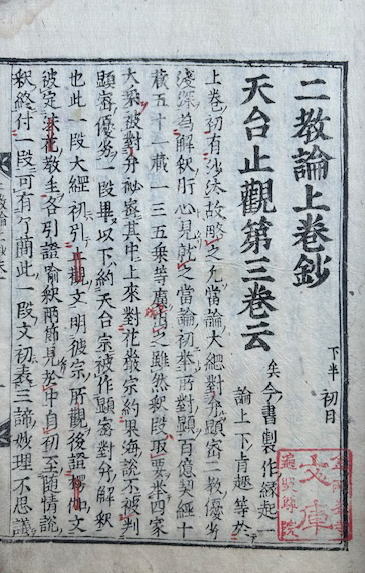 二教論上卷鈔
下半 初月
天台止觀第三卷云
矣今書製作縁起
論上下肯趣等於
上卷初有沙汰故略之凡當論大緦對弁顯密二教優劣
淺深為解釈肝心見就之當論初举所對顯百億契經十
藏五十一藏一三五乗等廣寄之雖然釈段取要举四家
大乗被對弁祕密其中上來對花嚴宗約果海說不被判
顯密優劣一段畢以下約天台宗被作顯密對弁解釈
也此一段大經初引止觀文明彼宗所觀後證釋仙文
被定法花教主各引證喻釈兩節見於中自初至随情說
釈終付一段可有了蕳此一段文初表三諦妙理不思議
文庫